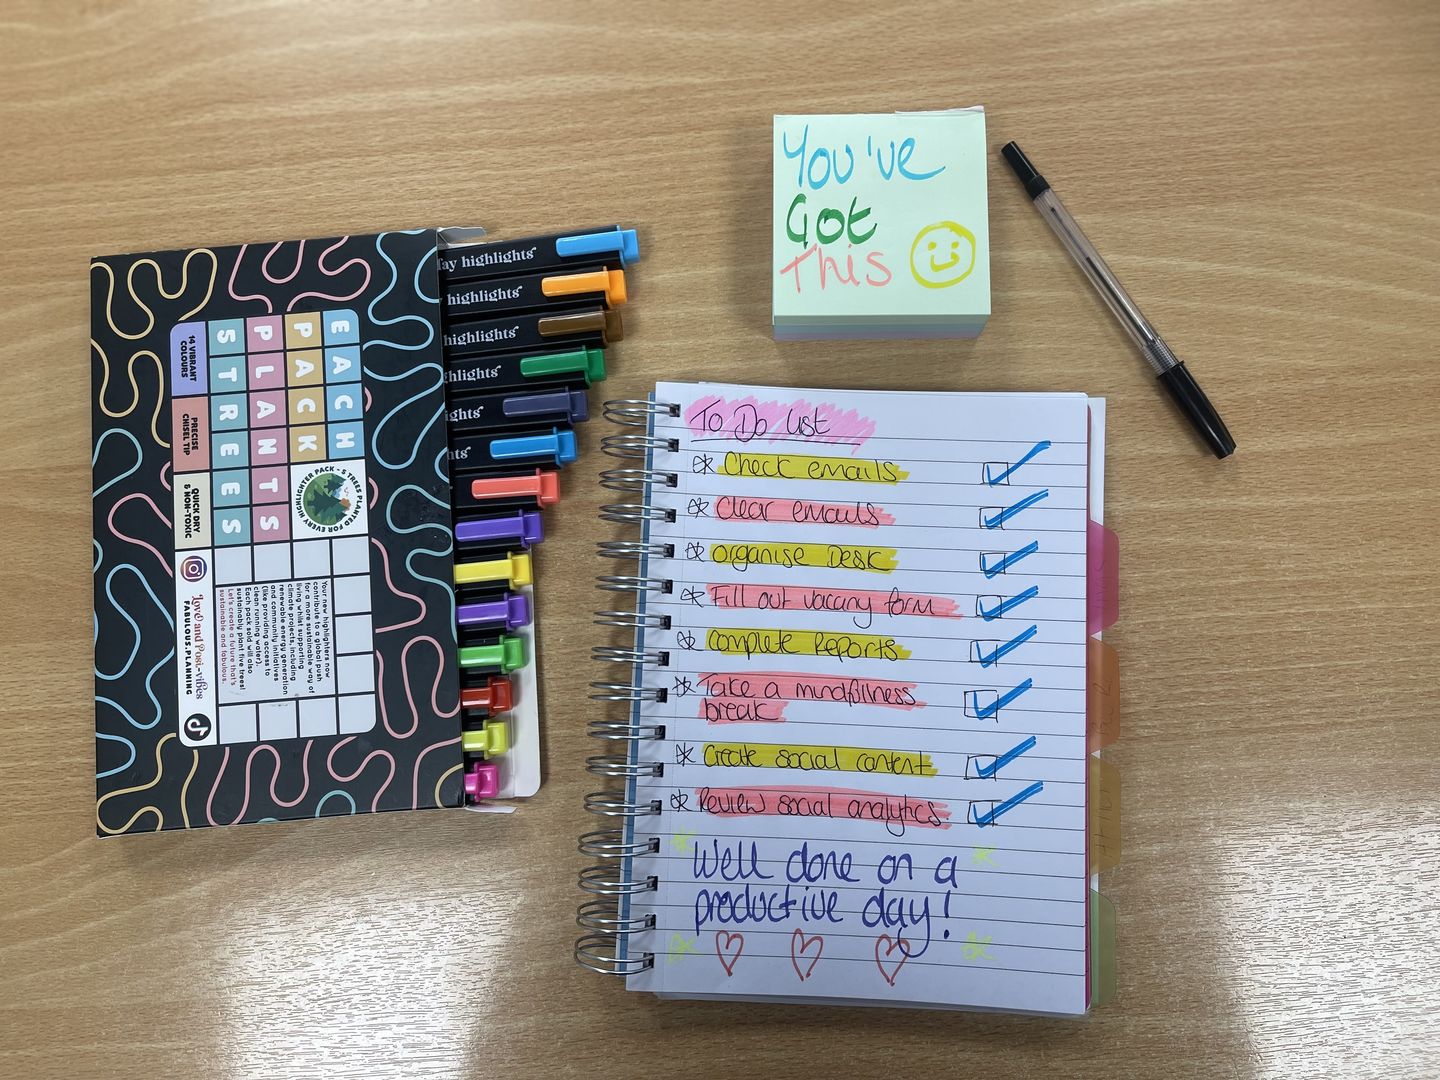 You've
Got
This
To Do list
Check emails
Clear emails
organise Desk
Fill out vacancy form
complete Reports
Take a mindfulness
break
Create social content
Review social analytics
Well done on a
productive day!
EACH
PACK
PLANTS
5 TREES
EVERY HIGHLIGHTER PACK - 5 TREES PLANTED FOR
14 VIBRANT
COLOURS
PRECISE
CHISEL TIP
QUICK DRY
& NON-TOXIC
Your new highlighters now
contribute to a global push
for a more sustainable way of
living whilst supporting
climate projects, including
renewable energy generation
and community initiatives
(like providing access to
clean running water).
Each pack sold will also
sustainably plant five trees!
Let's create a future that's
sustainable and fabulous.
Love and Post-vibes
FABULOUS.PLANNING
highlights
highlights
highlights
highlights